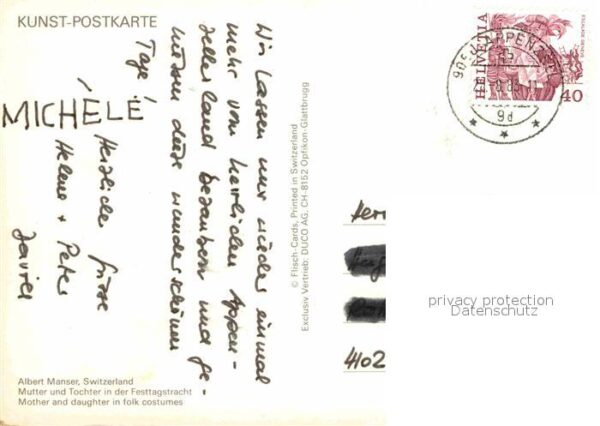 KUNST-POSTKARTE
Wir lassen uns wieder einmal
mehr vom herrlichen Appen-
zellerland bezaubern und ge-
niessen diese wunderschönen
Tage!
Herzliche Grüsse
Helene + Peter
Xavier
MICHÈLE
Albert Manser, Switzerland
Mutter und Tochter in der Festtagstracht
Mother and daughter in folk costumes
© Flisch-Cards, Printed in Switzerland
Exclusiv Vertrieb: DUCO AG, CH-8152 Opfikon-Glattbrugg
HELVETIA
ESCALADE GENÈVE
40
APPENZELL
9d
4102
privacy protection
Datenschutz